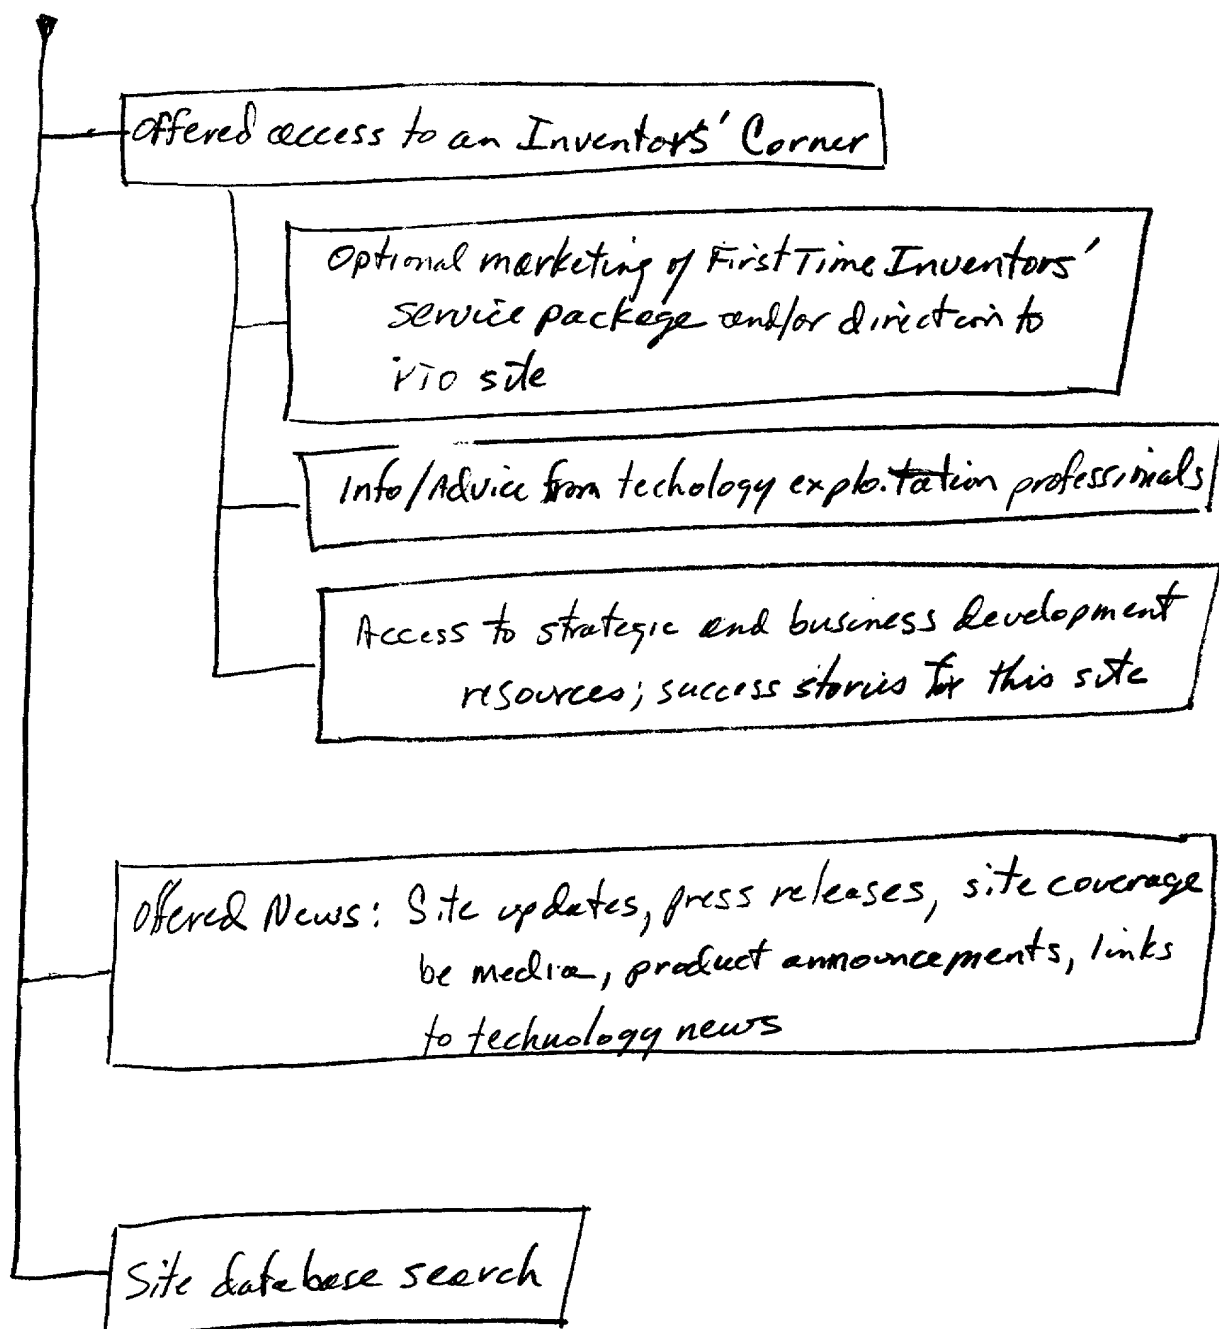 Offered access to an Inventors' Corner
Optional marketing of First Time Inventors'
service package and/or direction to
site
Info/Advice from techology exploitation professionals
Access to strategic and business development
resources; success stories for this site
Offered News: Site updates, press releases, site coverage
be media, product announcements, links
to technology news
Site database search